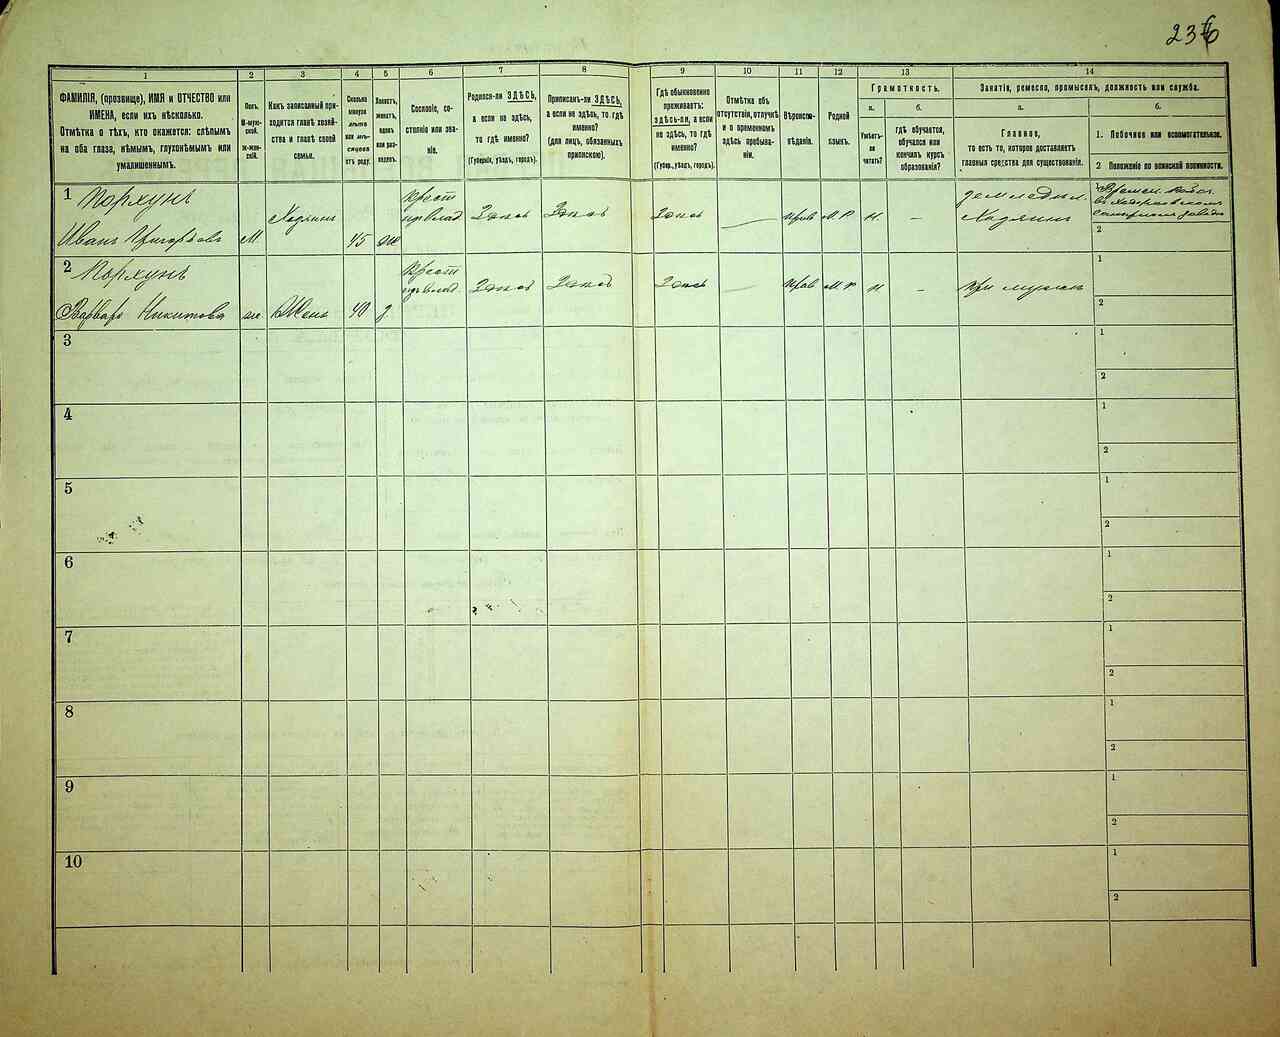 236
1
2
3
4
5
6
7
8
9
10
11
12
13
14
ФАМИЛІЯ, (прозвище), ИМЯ и ОТЧЕСТВО или
ИМЕНА, если ихъ нѣсколько.
Отмѣтка о тѣхъ, кто окажется: слѣпымъ
на оба глаза, нѣмымъ, глухонѣмымъ или
умалишеннымъ.
Полъ.
М-муж-
ской.
ж-жен-
скій.
Какъ записанный при-
ходится главѣ хозяй-
ства и главѣ своей
семьи.
Сколько
минуло
лѣтъ
или мѣ-
сяцевъ
отъ роду.
Холостъ,
женатъ,
вдовъ
или раз-
веденъ.
Сословіе, со-
стояніе или зва-
ніе.
Родился-ли ЗДѢСЬ,
а если не здѣсь,
то гдѣ именно?
(Губернія, уѣздъ, городъ).
Приписанъ-ли ЗДѢСЬ,
а если не здѣсь, то гдѣ
именно?
(для лицъ, обязанныхъ
припискою).
Гдѣ обыкновенно
проживаетъ:
здѣсь-ли, а если
не здѣсь, то гдѣ
именно?
(Губер., уѣздъ, городъ).
Отмѣтка объ
отсутствіи, отлучкѣ
и о временномъ
здѣсь пребыва-
ніи.
Вѣроиспо-
вѣданіе.
Родной
языкъ.
Грамотность.
а.
б.
Умѣетъ-
ли
читать?
гдѣ обучается,
обучался или
кончилъ курсъ
образованія?
Занятіе, ремесло, промыселъ, должность или служба.
а.
б.
Главное,
то есть то, которое доставляетъ
главныя средства для существованія.
1. Побочное или вспомогательное.
2 Положеніе по воинской повинности.
1 Порхунъ
Иванъ Григорьевъ
М
Хозяинъ
45
ж
Крест
Здѣсь
Здѣсь
Здѣсь
—
Прав
М. Р.
Н.
—
Земледѣл.
Хозяинъ
1
2
2 Порхунъ
Варвара Никитова
ж
Жена
40
з
Крест
Здѣсь
Здѣсь
Здѣсь
—
Прав
М Р
Н
—
При мужѣ
1
2
3
1
2
4
1
2
5
1
2
6
1
2
7
1
2
8
1
2
9
1
2
10
1
2